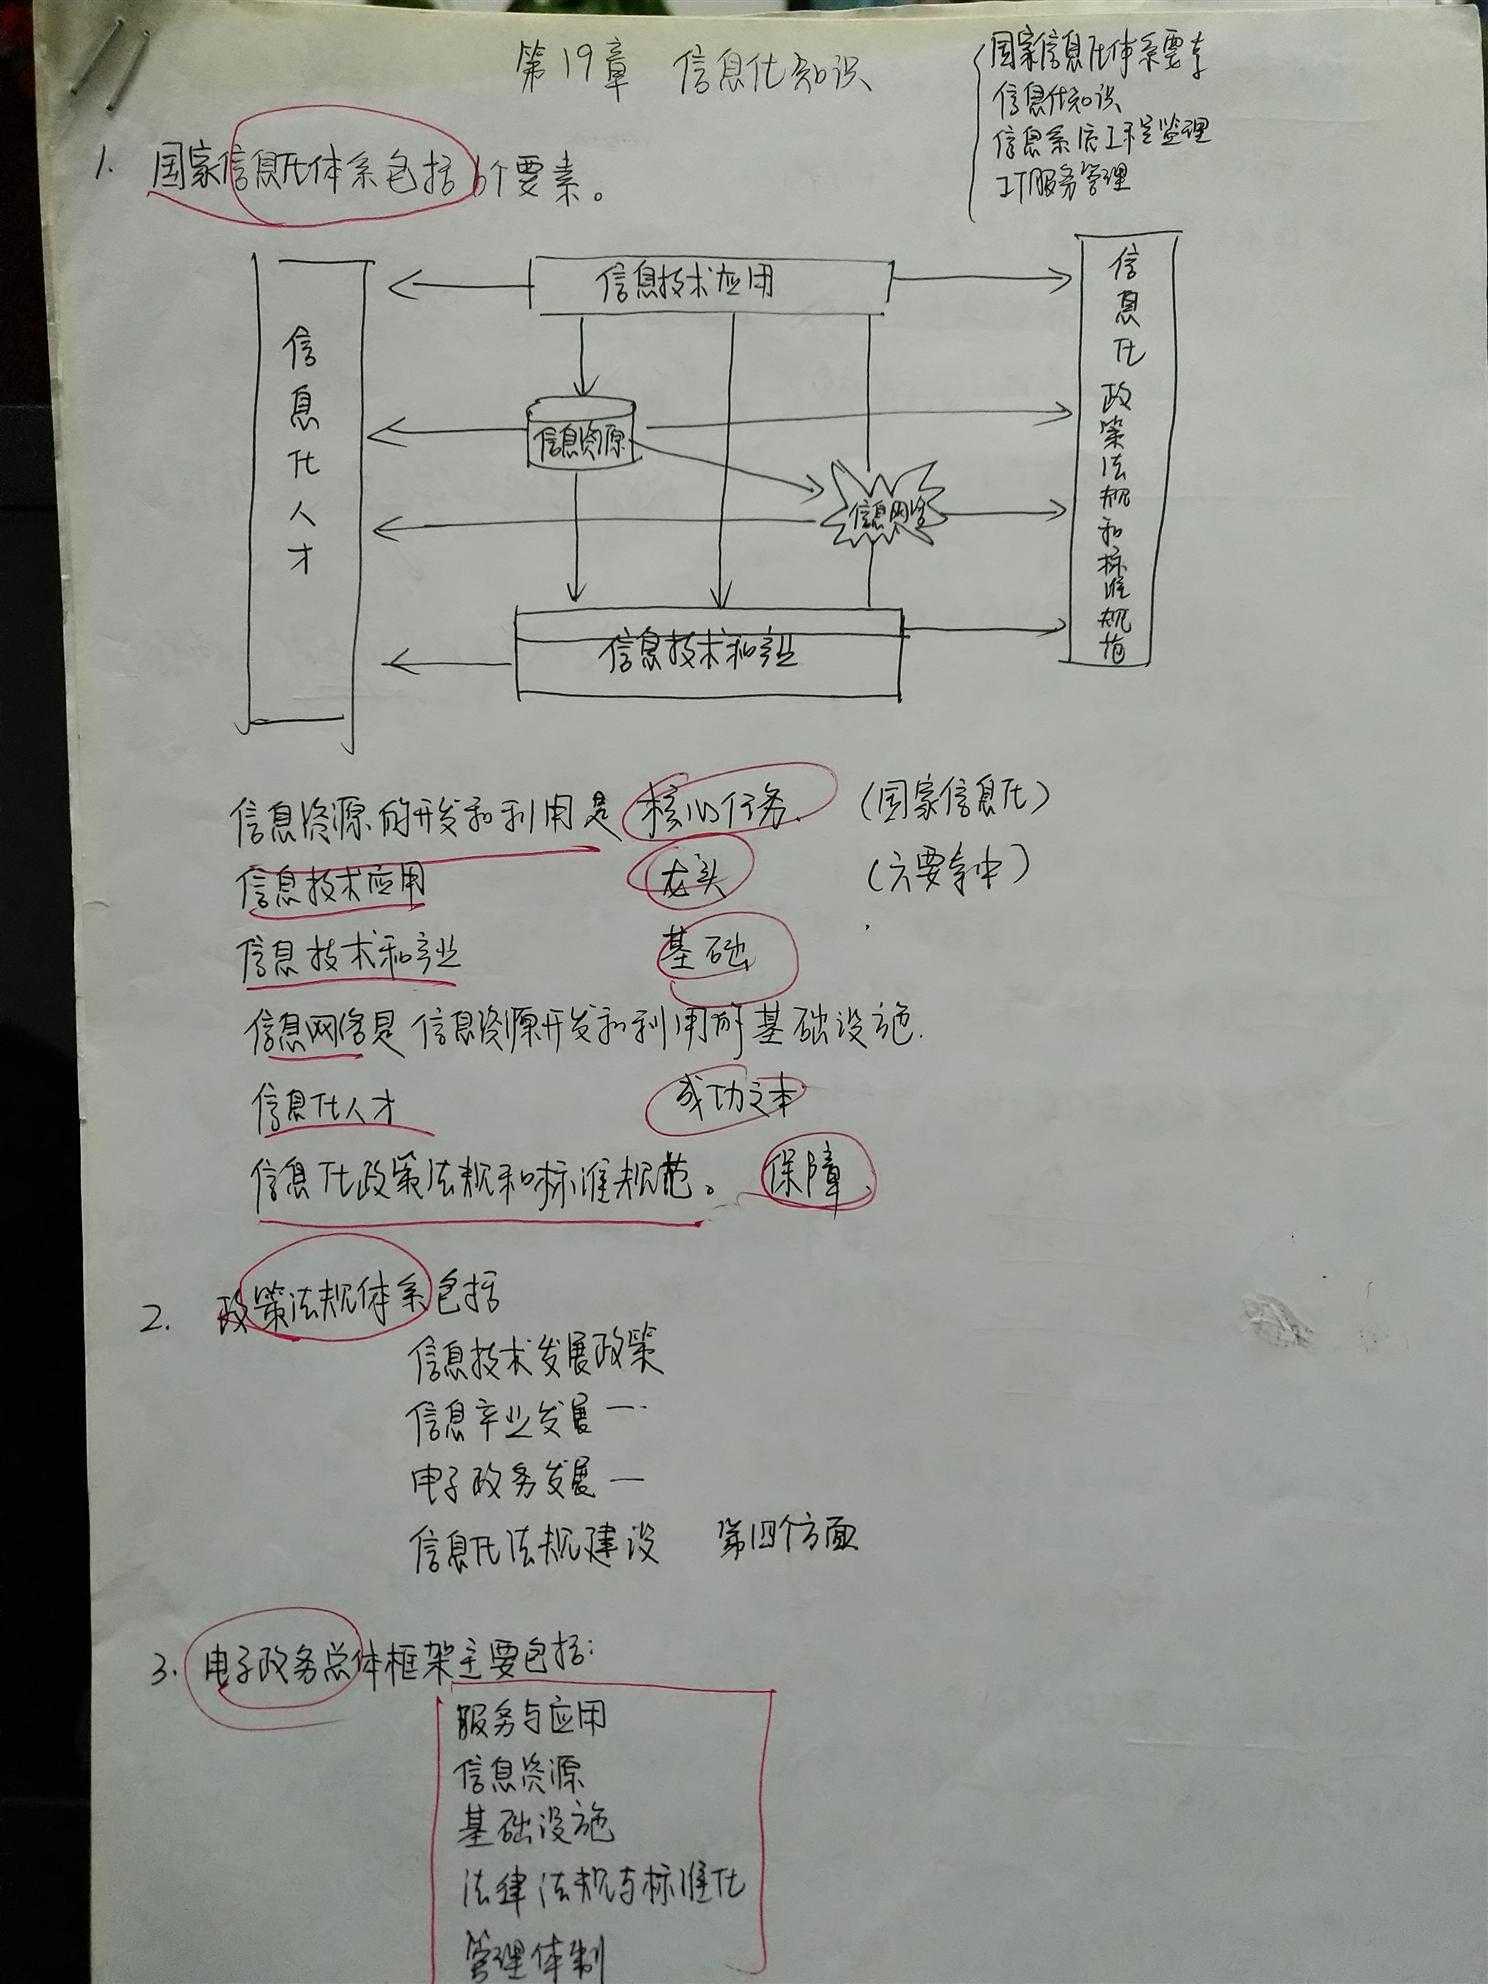 第19章 信息化知识
国家信息化体系要素
信息化知识
信息系统工程监理
IT服务管理
1. 国家信息化体系包括6个要素。
信息技术应用
信息化人才
信息资源
信息网络
信息化政策法规和标准规范
信息技术和产业
信息资源的开发和利用是 核心任务. (国家信息化)
信息技术应用 龙头 (六要素中)
信息技术和产业 基础
信息网络是 信息资源开发和利用的基础设施.
信息化人才 成功之本
信息化政策法规和标准规范。 保障
2. 政策法规体系包括
信息技术发展政策
信息产业发展一..
电子政务发展一
信息化法规建设 第四个方面
3. 电子政务总体框架主要包括:
服务与应用
信息资源
基础设施
法律法规与标准化
管理体制